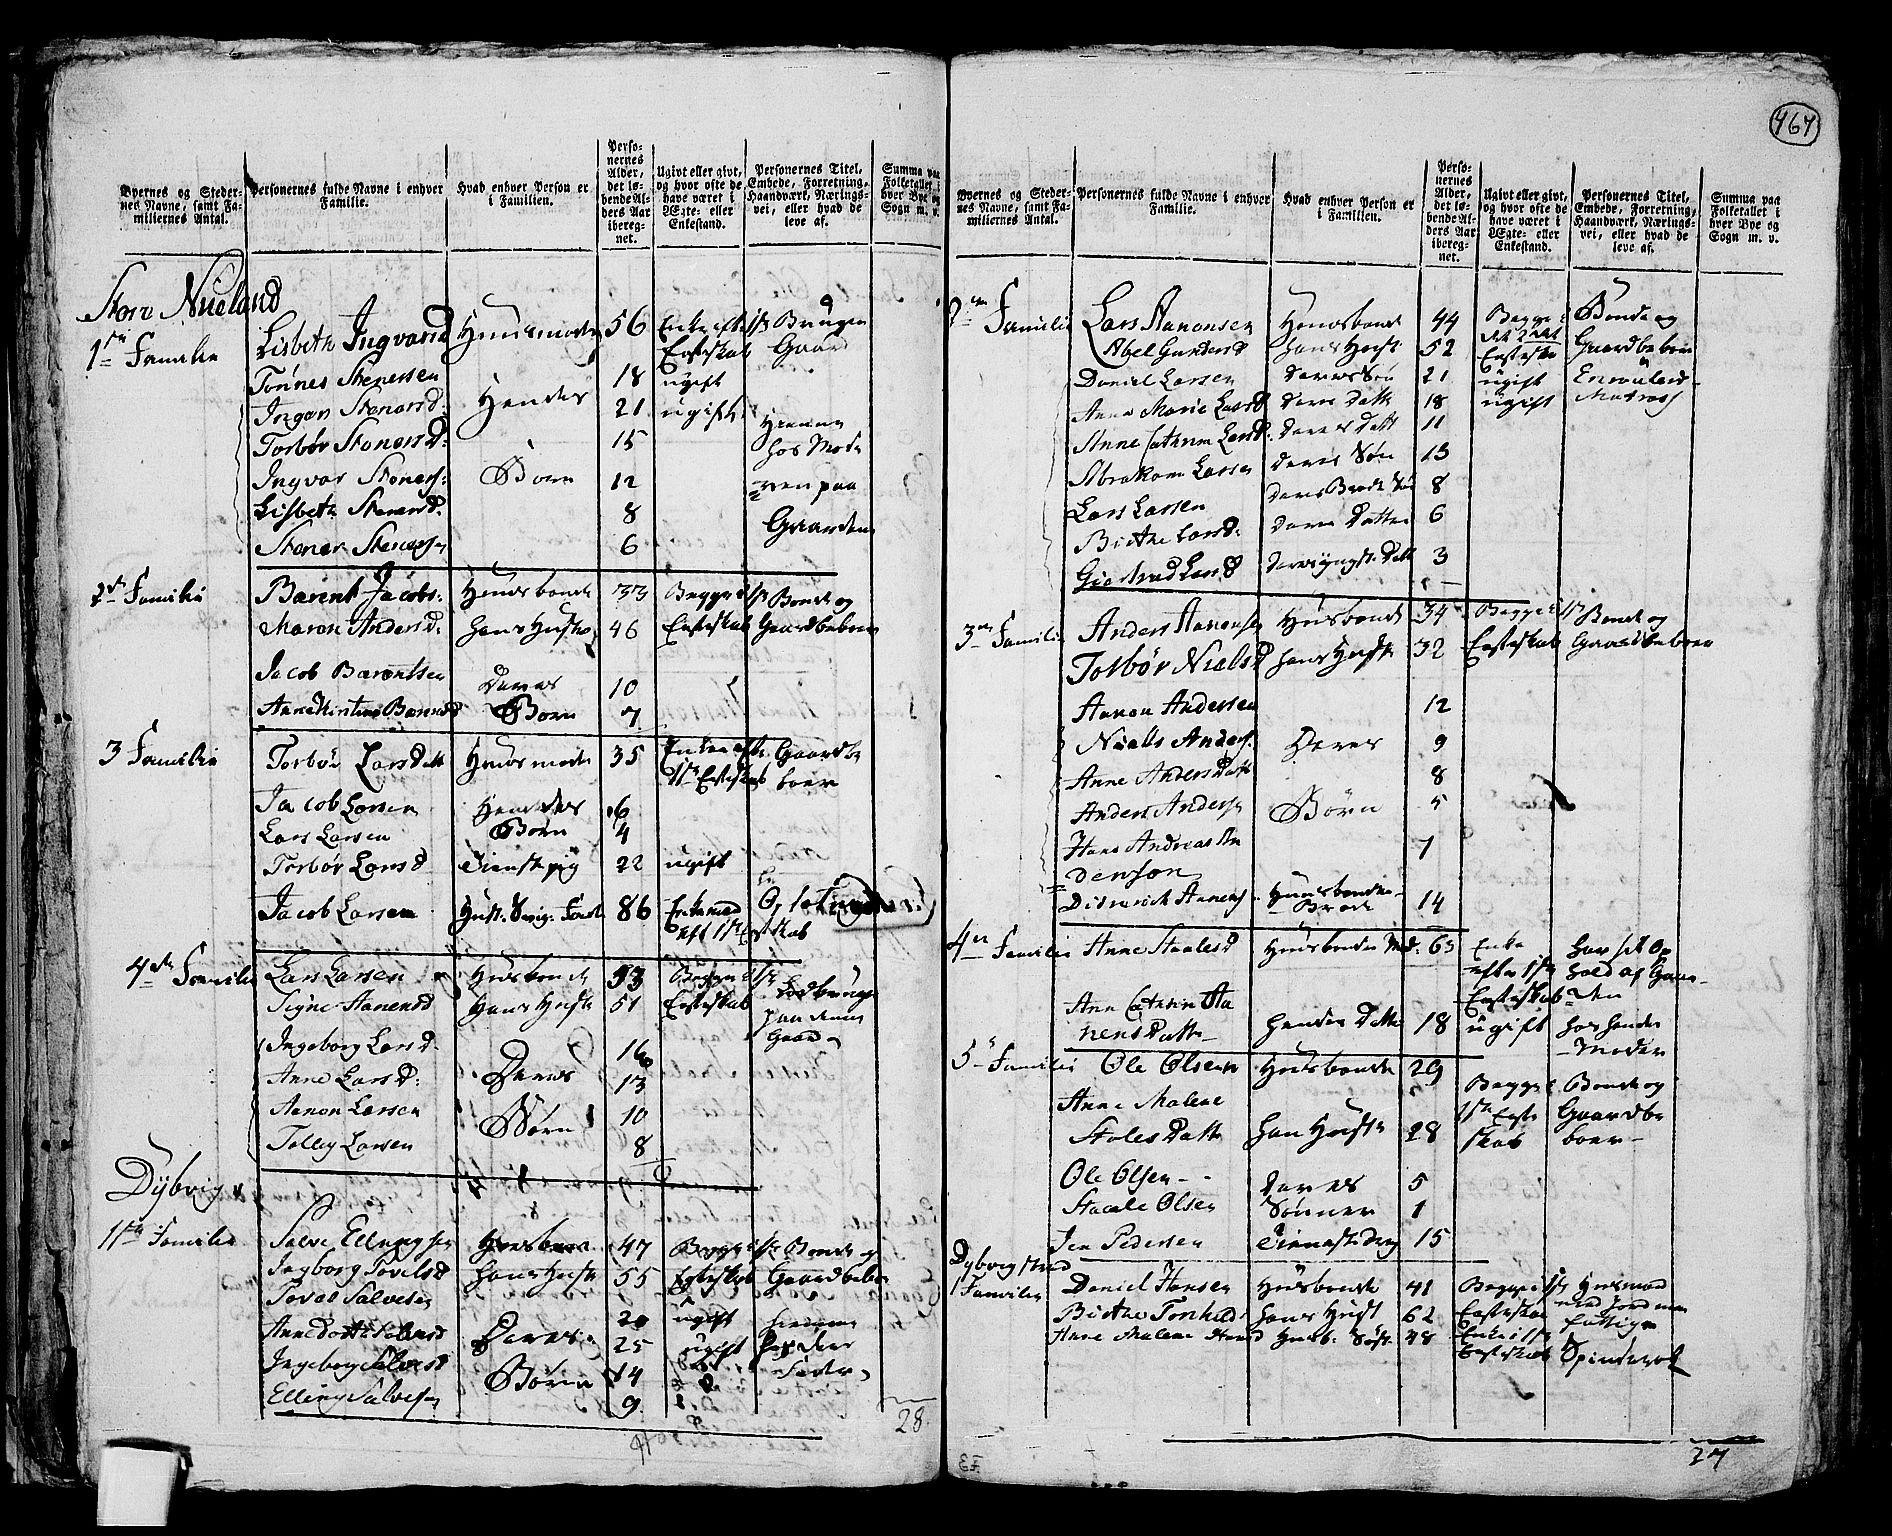 467
Byernes og Steder-
nes Navne, samt Fa-
miliernes Antal.
Personernes fulde Navne i enhver
Familie.
Hvad enhver Person er
i Familien.
Perso-
nernes
Alder,
det lø-
bende Al-
ders Aar
ibereg-
net.
Ugivt eller givt,
og hvor ofte de
have været i
Ægte- eller
Enkestand.
Personernes Titel,
Embede, Forretning,
Haandværk, Nærings-
vei, eller hvad de
leve af.
Summa paa
Folketallet i
hver Bye og
Sogn m. v.
Store Nueland
1ste Familie Lisbeth Ingvarsd Huusmoder 56 Enke efter 1ste Bruger
Egteskab Gaard
Tønnes Stenersen 18 ugift
Ingar Stenersd: Hendes 21 ugift
Torbør Stenersd: 15 Hiemme
hos Mode
Ingvar Steners: Børn 12 ren paa
Lisbeth Stenersd. 8 Gaarden
Stener Steners: 6
2den Familie Barent Jacobs: Huusbonde 33 Begge i 1ste Bonde og
Maren Andersd: Hans Hustro 46 Egteskab Gaardbeboer
Jacob Barentsen Deres 10
Anne Kirstine Barentsd Børn 7
3 Familie Torbør Larsdatt Huusmoder 35 Enke efter Gaardbe
1ste Egteskab boer
Jacob Larsen Hendes 6
Lars Larsen Børn 4
Torbør Larsd Tienstepig 22 ugift
Jacob Larsen 86 Enkemand
eft 1ste Egteskab
4de Familie Lars Larsen Huusbonde 53 Begge i 1ste
Signe Aanensd Hans Hustr 51 Egteskab paa denne
Gaard
Ingeborg Larsd. 16
Anne Larsd: Deres 13
Aanon Larsen Børn 10
Tolley Larsen 8
Dybvig
1ste Familie Salve Ellingsen Huusbonde 47 Begge i 1ste Bonde og
Ingborg Torelsd Hans Hustr 55 Egteskab Gaardbebo
Torel Salvesen 20 ugift hiemme
Anne Dorthe Salvesd Deres 25 ugift hos deres
Ingeborg Salvesd Børn 14 Fader
Elling Salves: 9
28.
Byernes og Steder-
nes Navne, samt Fa-
miliernes Antal.
Personernes fulde Navne i enhver
Familie.
Hvad enhver Person er
i Familien.
Perso-
nernes
Alder,
det lø-
bende Al-
ders Aar
ibereg-
net.
Ugivt eller givt,
og hvor ofte de
have været i
Ægte- eller
Enkestand.
Personernes Titel,
Embede, Forretning,
Haandværk, Nærings-
vei, eller hvad de
leve af.
Summa paa
Folketallet i
hver Bye og
Sogn m. v.
2den Familie Lars Aanonsen Huusbonde 44 Begge i Bonde og
Abel Gundersd Hans Hustr 52 Egteska Gaardbeboer
Daniel Larsen Deres Søn 21 ugift Enrouleret
Anne Marie Larsd Deres Datt 18 ugift Matros
Anne Cathrine Larsd: Deres Datt 11
Abraham Larsen Deres Søn 13
Lars Larsen 8
Birthe Larsd: Deres Datter 6
Giertrud Larsd Deres yngste Datt 3
3die Familie Anders Aanonsen Huusbonde 34 Begge i 1ste Bonde og
Torbør Nielsd Hans Hustr 32 Egteskab Gaardbeboer
Aanon Andersen 12
Niels Anders: Deres 9
Anne Andersdatt 8
Anders Andersen Børn 5
Hans Andreas An 1
dersøn
Diderich Aanens: Huusbondens
Brode 14
4de Familie Anne Staalesd Huusbondens Mod: 63 Enke har sit Op
efter 1ste hold af Gaar-
Egteskab den
Ann Cathrin Aa
nensDatt Hendes Datte 18 ugift hos hendes
Moder
5te Familie Ole Olsen Huusbonde 29 Begge i Bonde og
Anne Malene 1ste Egte Gaardbe
StalesDatt Hans Hustr 28 skab boer
Ole Olsen Deres 5
Staale Olsen Sønner 1
Jen Pedersen Tienestedreng 15
Dybvig Strand
1 Familie Daniel Hansen Huusbonde 41 Begge i 1ste Huusmand
Birthe Tonhild: Hans Hust 62 Egteskab
Anne Malene Huusb: Søst 48 Enke i 1ste
Egteskab
27